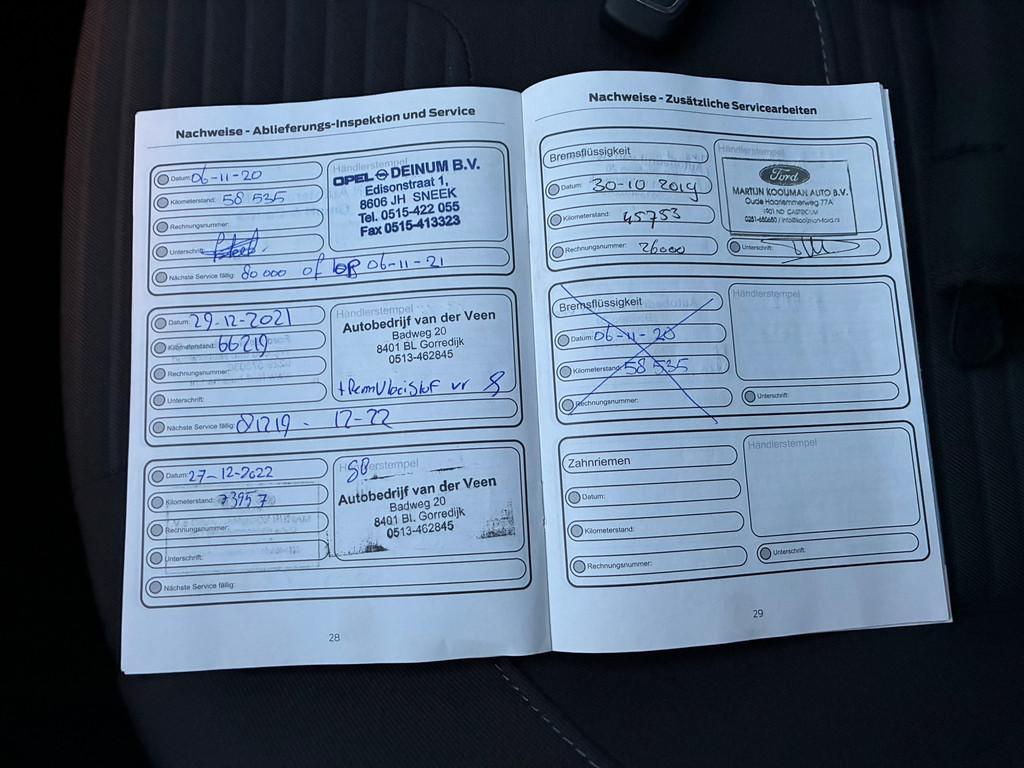 Nachweise - Ablieferungs-Inspektion und Service
Datum: 06-11-20
Kilometerstand: 58 535
Rechnungsnummer:
Unterschrift:
Nächste Service fällig: 80 000 of op 06-11-21
Händlerstempel
OPEL DEINUM B.V.
Edisonstraat 1,
8606 JH SNEEK
Tel. 0515-422 055
Fax 0515-413323
Datum: 29-12-2021
Kilometerstand: 66219
Rechnungsnummer:
Unterschrift:
Nächste Service fällig: 81219 - 12-22
Händlerstempel
Autobedrijf van der Veen
Badweg 20
8401 BL Gorredijk
0513-462845
Datum: 27-12-2022
Kilometerstand: 73957
Rechnungsnummer:
Unterschrift:
Nächste Service fällig:
Händlerstempel
Autobedrijf van der Veen
Badweg 20
8401 BL Gorredijk
0513-462845
28
Nachweise - Zusätzliche Servicearbeiten
Bremsflüssigkeit
Datum: 30-10 2019
Kilometerstand: 45753
Rechnungsnummer: 26000
Händlerstempel
Ford
MARTIJN KOOIJMAN AUTO B.V.
Oude Haarlemmerweg 77A
1901 ND CASTRICUM
0251-650650 / info@kooijman-ford.nl
Unterschrift:
Bremsflüssigkeit
Datum: 06-11-20
Kilometerstand: 58 535
Rechnungsnummer:
Händlerstempel
Unterschrift:
Zahnriemen
Datum:
Kilometerstand:
Rechnungsnummer:
Händlerstempel
Unterschrift:
29